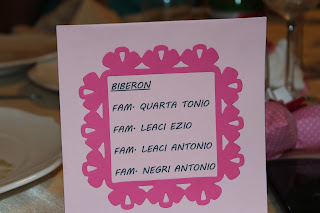 BIBERON
FAM. QUARTA TONIO
FAM. LEACI EZIO
FAM. LEACI ANTONIO
FAM. NEGRI ANTONIO